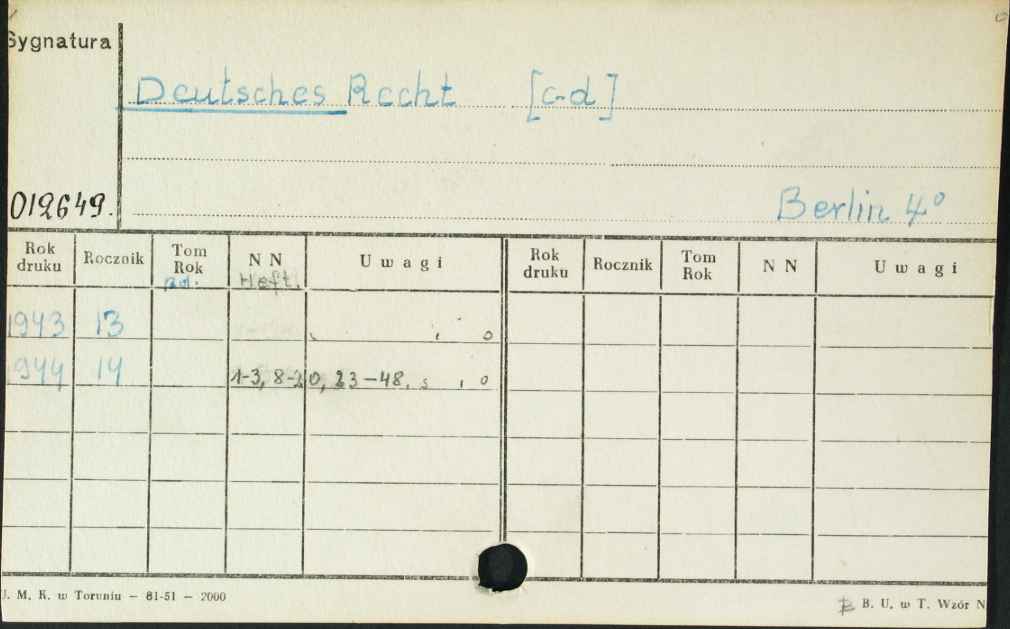 Sygnatura
Deutsches Recht [c-d]
012649. Berlin 4°
Rok druku Rocznik Tom Rok N N Uwagi Rok druku Rocznik Tom Rok N N Uwagi
Heft.
1943 13
1944 14 1-3, 8-20, 23-48.
U. M. K. w Toruniu — 81-51 — 2000
B. U. w T. Wzór N